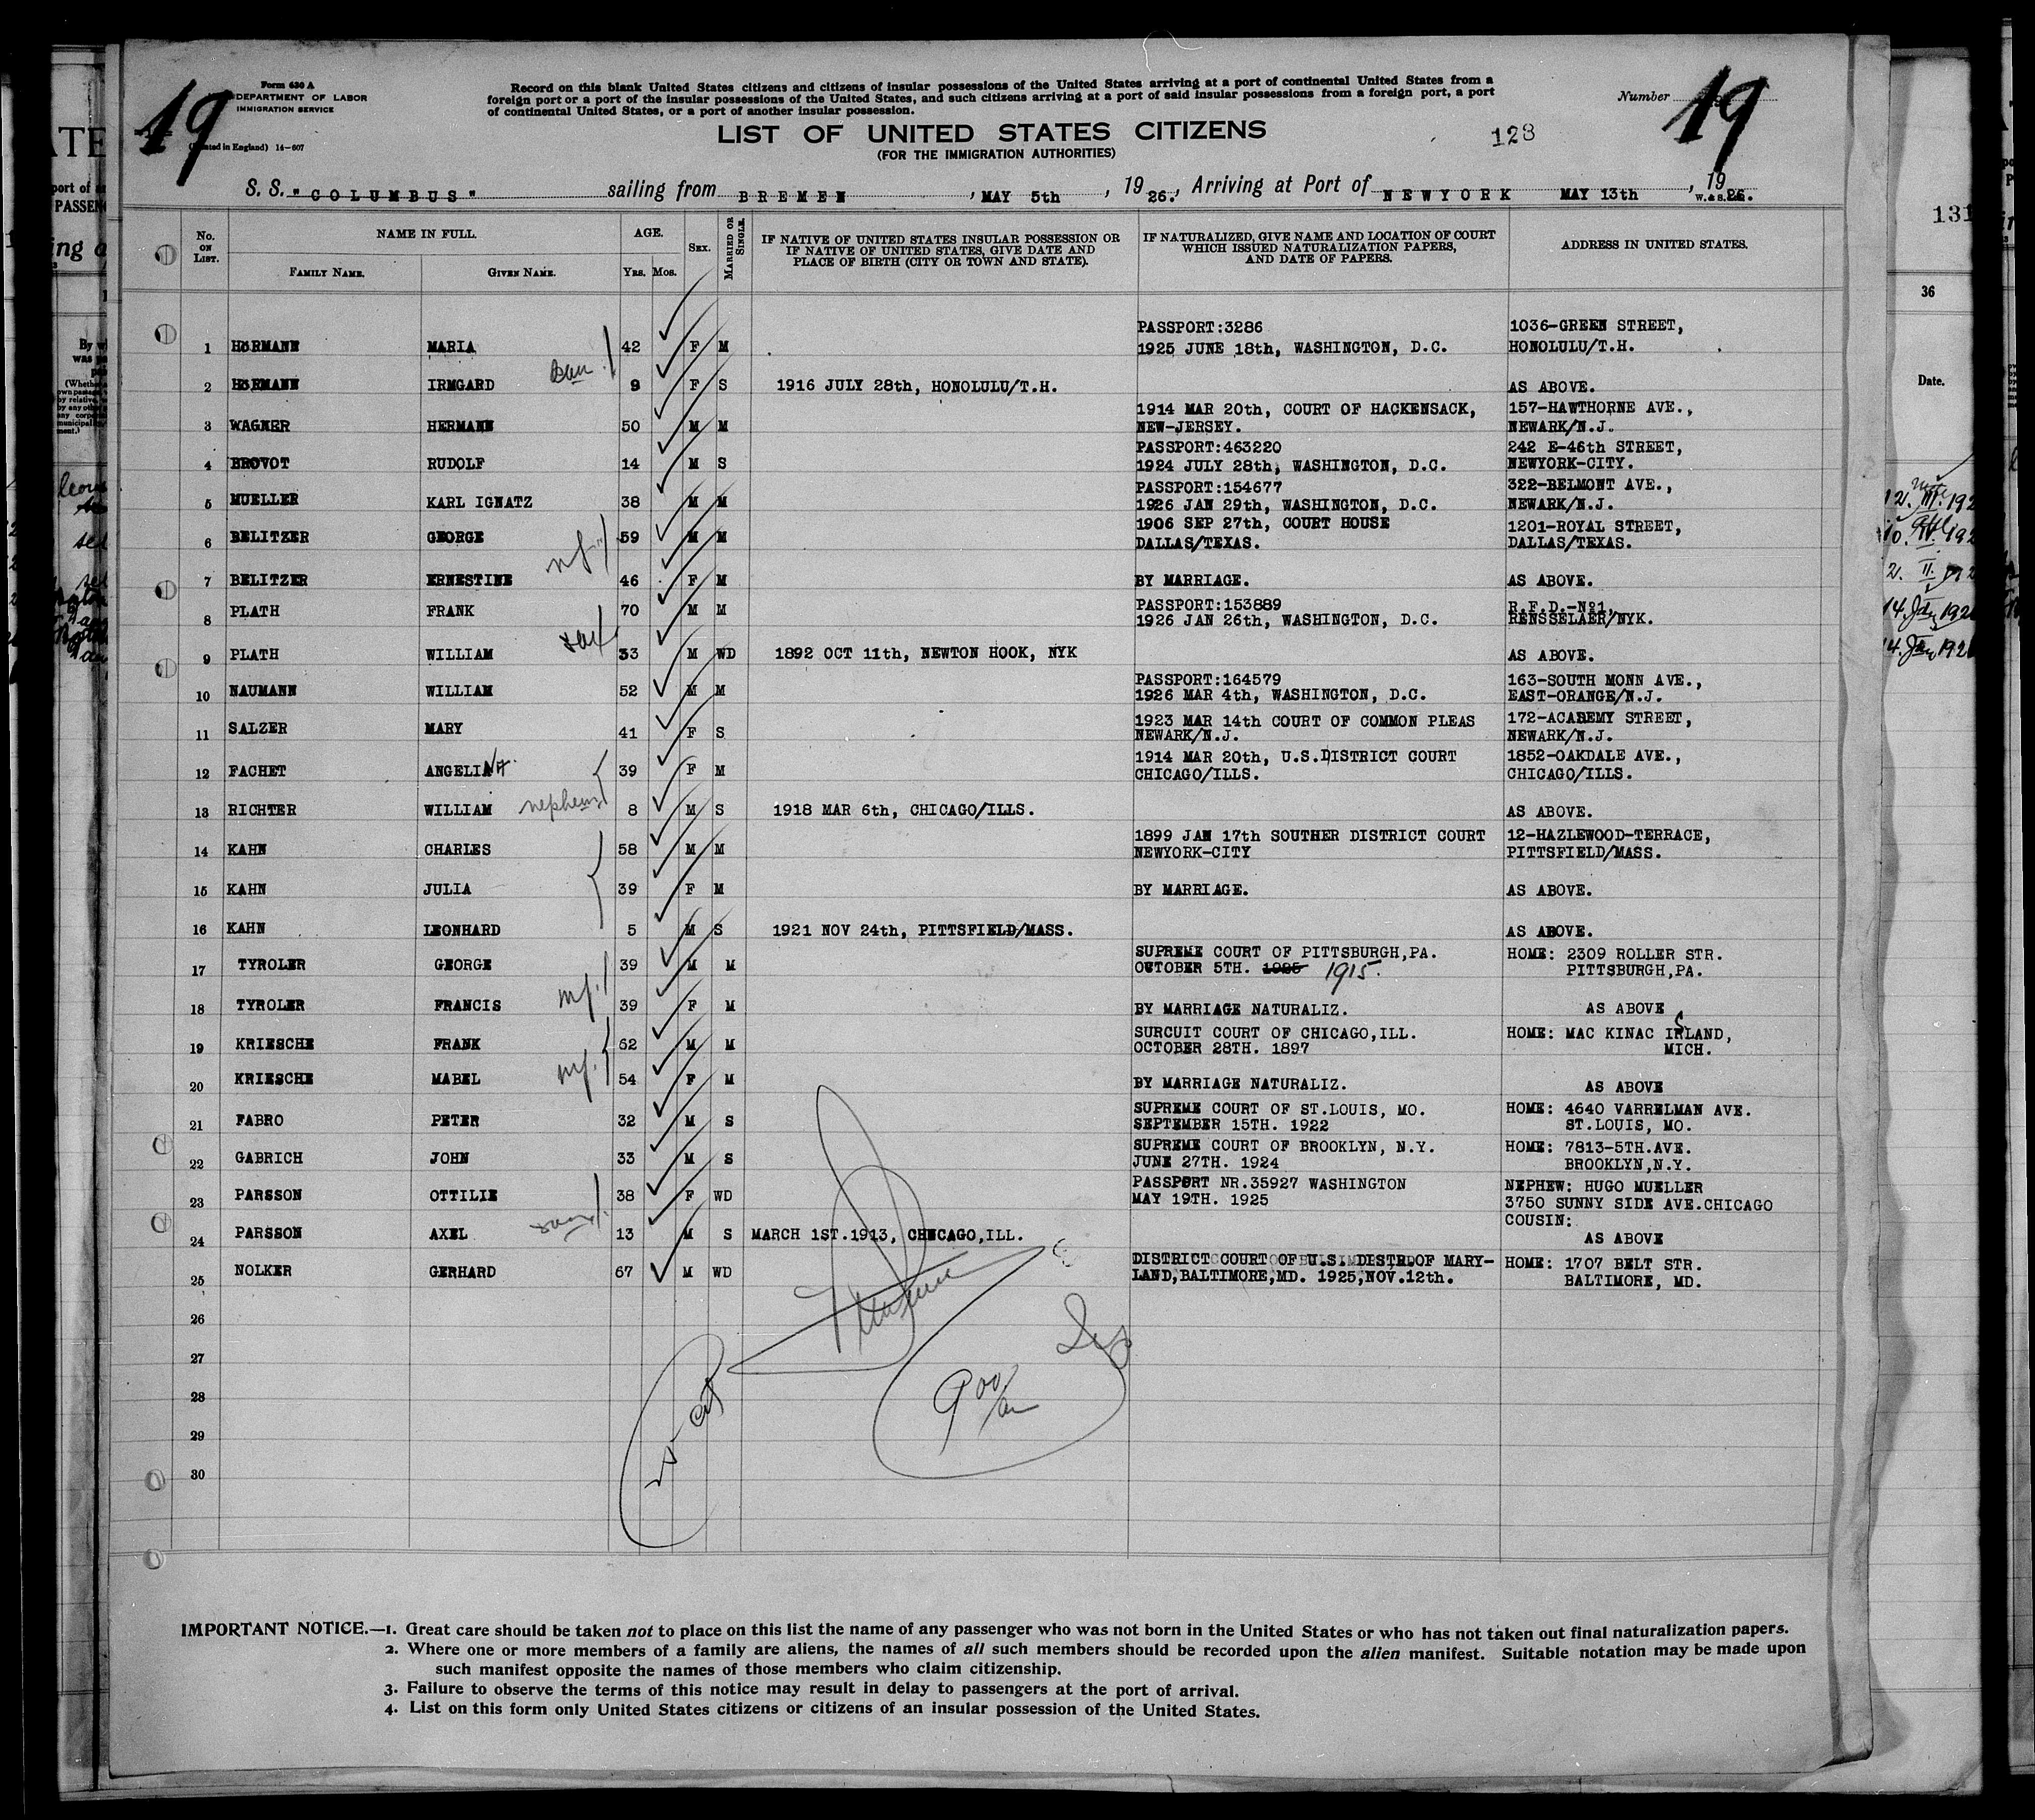 19
Form 630 A
DEPARTMENT OF LABOR
IMMIGRATION SERVICE
(Printed in England) 14-607
Record on this blank United States citizens and citizens of insular possessions of the United States arriving at a port of continental United States from a
foreign port or a port of the insular possessions of the United States, and such citizens arriving at a port of said insular possessions from a foreign port, a port
of continental United States, or a port of another insular possession.
Number 19
LIST OF UNITED STATES CITIZENS
(FOR THE IMMIGRATION AUTHORITIES)
128
S. S. "COLUMBUS" sailing from BREMEN, MAY 5th, 1926., Arriving at Port of NEWYORK MAY 13th, 1926.
No. ON LIST. NAME IN FULL. AGE. SEX. MARRIED OR SINGLE. IF NATIVE OF UNITED STATES INSULAR POSSESSION OR IF NATIVE OF UNITED STATES, GIVE DATE AND PLACE OF BIRTH (CITY OR TOWN AND STATE). IF NATURALIZED, GIVE NAME AND LOCATION OF COURT WHICH ISSUED NATURALIZATION PAPERS, AND DATE OF PAPERS. ADDRESS IN UNITED STATES.
FAMILY NAME. GIVEN NAME. YRS. MOS.
PASSPORT:3286 1036-GREEN STREET,
1 HöRMANN MARIA 42 F M 1925 JUNE 18th, WASHINGTON, D.C. HONOLULU/T.H.
2 HöRMANN IRMGARD 9 F S 1916 JULY 28th, HONOLULU/T.H. AS ABOVE.
1914 MAR 20th, COURT OF HACKENSACK, 157-HAWTHORNE AVE.,
3 WAGNER HERMANN 50 M M NEW-JERSEY. NEWARK/N.J.
PASSPORT:463220 242 E-46th STREET,
4 BROVOT RUDOLF 14 M S 1924 JULY 28th, WASHINGTON, D.C. NEWYORK-CITY.
PASSPORT:154677 322-BELMONT AVE.,
5 MUELLER KARL IGNATZ 38 M M 1926 JAN 29th, WASHINGTON, D.C. NEWARK/N.J.
1906 SEP 27th, COURT HOUSE 1201-ROYAL STREET,
6 BELITZER GEORGE 59 M M DALLAS/TEXAS. DALLAS/TEXAS.
7 BELITZER ERNESTINE 46 F M BY MARRIAGE. AS ABOVE.
PASSPORT:153889 R.F.D.-No1,
8 PLATH FRANK 70 M M 1926 JAN 26th, WASHINGTON, D.C. RENSSELAER/NYK.
9 PLATH WILLIAM 33 M WD 1892 OCT 11th, NEWTON HOOK, NYK AS ABOVE.
PASSPORT:164579 163-SOUTH MONN AVE.,
10 NAUMANN WILLIAM 52 M M 1926 MAR 4th, WASHINGTON, D.C. EAST-ORANGE/N.J.
1923 MAR 14th COURT OF COMMON PLEAS 172-ACADEMY STREET,
11 SALZER MARY 41 F S NEWARK/N.J. NEWARK/N.J.
1914 MAR 20th, U.S.DISTRICT COURT 1852-OAKDALE AVE.,
12 FACHET ANGELINA 39 F M CHICAGO/ILLS. CHICAGO/ILLS.
13 RICHTER WILLIAM nephew 8 M S 1918 MAR 6th, CHICAGO/ILLS. AS ABOVE.
1899 JAN 17th SOUTHER DISTRICT COURT 12-HAZLEWOOD-TERRACE,
14 KAHN CHARLES 58 M M NEWYORK-CITY PITTSFIELD/MASS.
15 KAHN JULIA 39 F M BY MARRIAGE. AS ABOVE.
16 KAHN LEONHARD 5 M S 1921 NOV 24th, PITTSFIELD/MASS. AS ABOVE.
SUPREME COURT OF PITTSBURGH,PA. HOME: 2309 ROLLER STR.
17 TYROLER GEORGE 39 M M OCTOBER 5TH. 1925 1915. PITTSBURGH,PA.
18 TYROLER FRANCIS 39 F M BY MARRIAGE NATURALIZ. AS ABOVE
SURCUIT COURT OF CHICAGO,ILL. HOME: MAC KINAC ISLAND,
19 KRIESCHE FRANK 62 M M OCTOBER 28TH. 1897 MICH.
20 KRIESCHE MABEL 54 F M BY MARRIAGE NATURALIZ. AS ABOVE
SUPREME COURT OF ST.LOUIS, MO. HOME: 4640 VARRELMAN AVE.
21 FABRO PETER 32 M S SEPTEMBER 15TH. 1922 ST.LOUIS, MO.
SUPREME COURT OF BROOKLYN, N.Y. HOME: 7813-5TH.AVE.
22 GABRICH JOHN 33 M S JUNE 27TH. 1924 BROOKLYN,N.Y.
PASSPORT NR.35927 WASHINGTON NEPHEW: HUGO MUELLER
23 PARSSON OTTILIE 38 F WD MAY 19TH. 1925 3750 SUNNY SIDE AVE.CHICAGO
COUSIN:
24 PARSSON AXEL 13 M S MARCH 1ST.1913, CHICAGO,ILL. AS ABOVE
DISTRICT COURT OF U.S. DISTR.OF MARY- HOME: 1707 BELT STR.
25 NOLKER GERHARD 67 M WD LAND,BALTIMORE,MD. 1925,NOV.12th. BALTIMORE, MD.
26
27
28
29
30
IMPORTANT NOTICE.—1. Great care should be taken not to place on this list the name of any passenger who was not born in the United States or who has not taken out final naturalization papers.
2. Where one or more members of a family are aliens, the names of all such members should be recorded upon the alien manifest. Suitable notation may be made upon
such manifest opposite the names of those members who claim citizenship.
3. Failure to observe the terms of this notice may result in delay to passengers at the port of arrival.
4. List on this form only United States citizens or citizens of an insular possession of the United States.
131
36
Date.